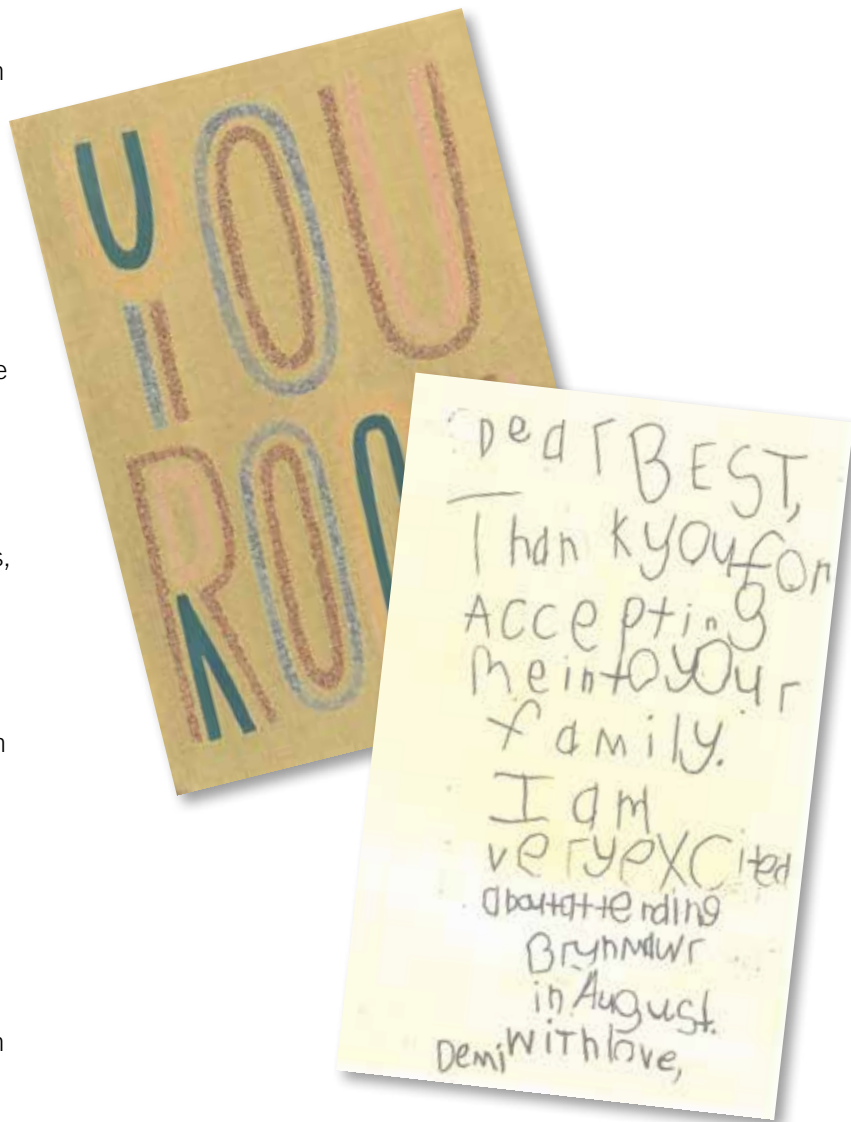 n
e
s,
n
n
YOU
ROC
Dear BEST,
Thank you for
Accepting
me into your
family.
I am
very excited
about attending
Bryn Mawr
in August.
With love,
Demi